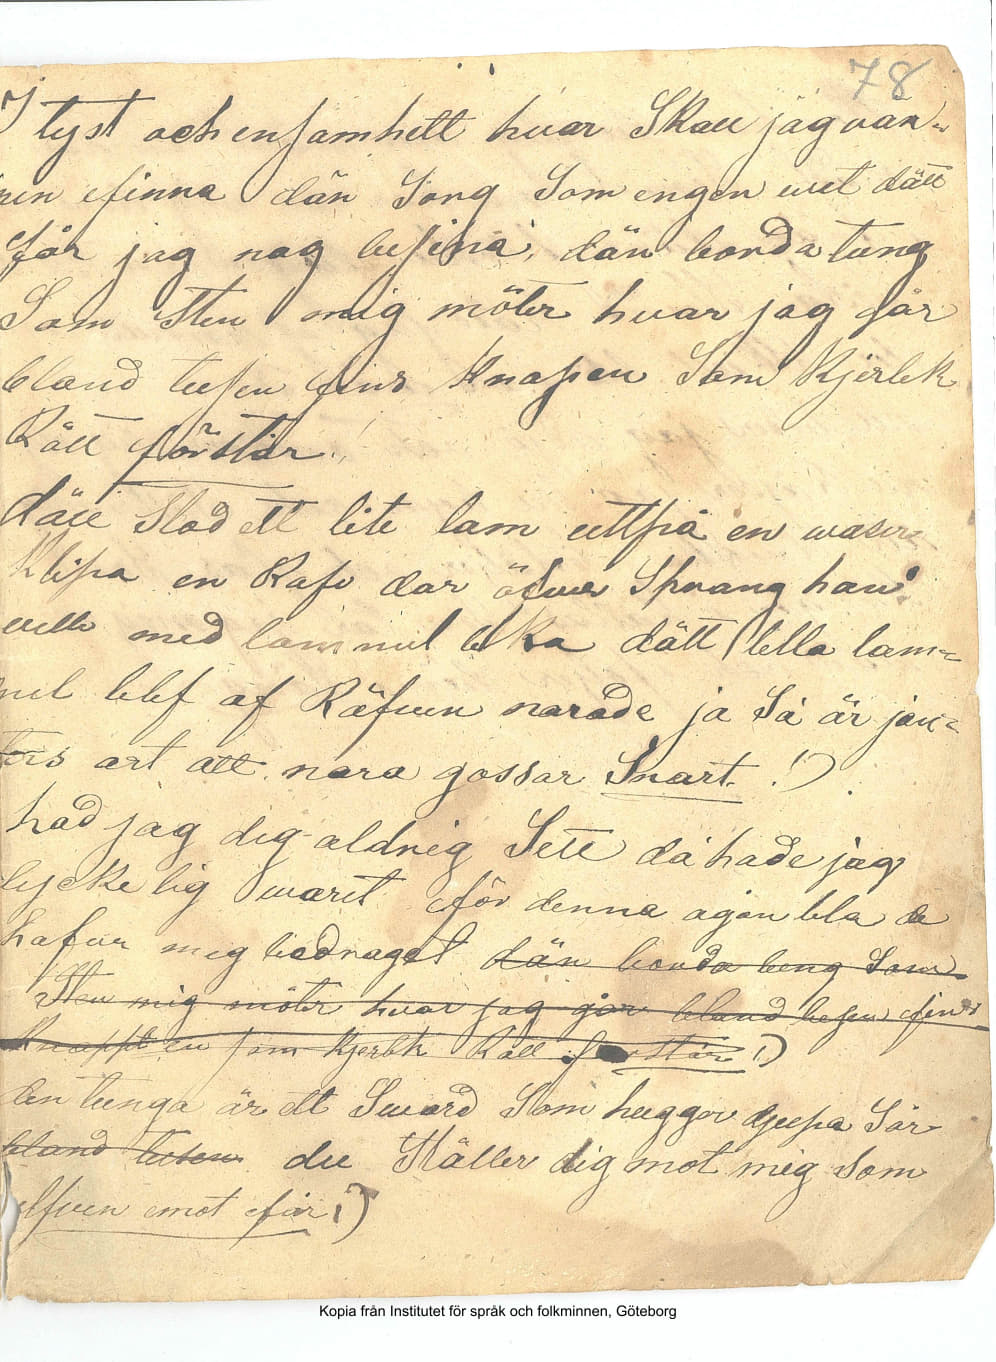 78
I tyst och ensamhett hvar Skall jag vän-
nen finna dän Sorg Som engen wet dätt
får jag nog befina, dän borda tung
Som Sten mig möter hvar jag går
bland tusen fins Knapen Som Kjerlek
Rätt förstår!
däll stod ett lite lam uttpå en
Klipa en Rafv dar öfver Sprang han
ville med lammul leka dätt lella lam=
mul blef af Räfven narade ja Så är jän=
tors art att nara gossar Snart !)
had jag dig aldrig Sett då hade jag
lyckelig waret för denna agon bla de
hafver meg bedraget dän borda teng Som
Sten mig möter hvar jag går bland tusen fins
Knappt en som kjerlek Rätt förstår !)
den tunga är ett Sward Som huggor djupa Sår
bland tusen du Ställer dig mot mig som
elfven emot får !)
Kopia från Institutet för språk och folkminnen, Göteborg